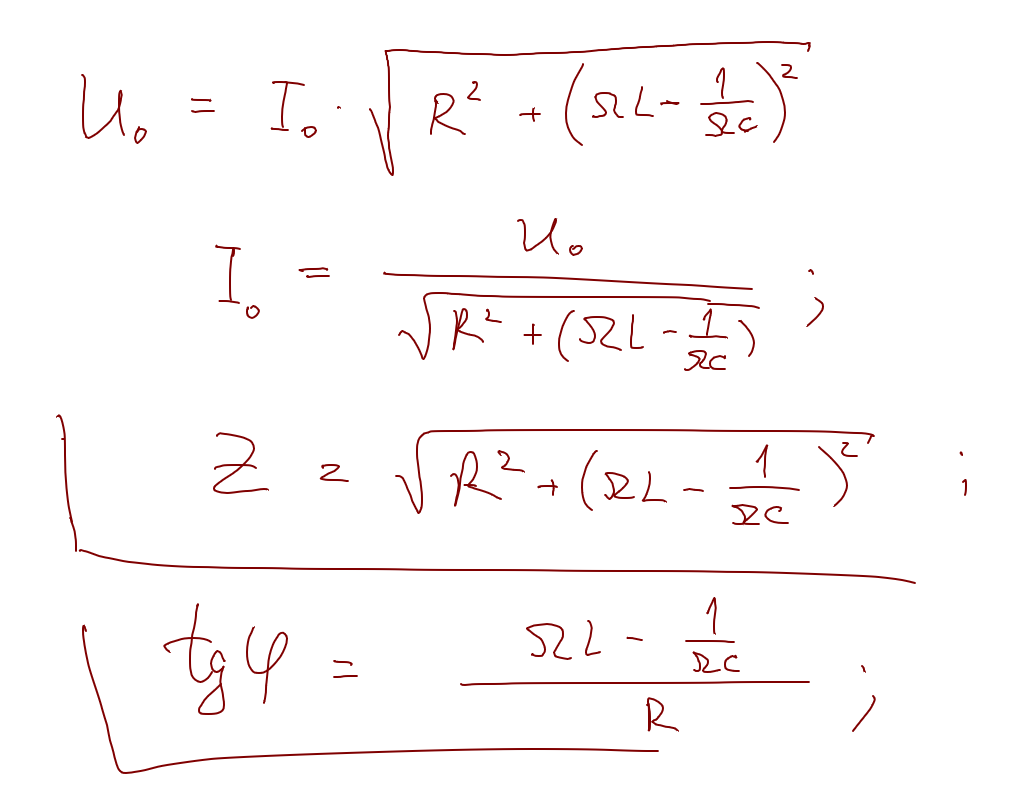 U₀ = I₀ · √(R² + (ΩL - 1/ΩC)²)
I₀ = U₀ / √(R² + (ΩL - 1/ΩC)) ;
Z = √(R² + (ΩL - 1/ΩC)²) ;
tg φ = (ΩL - 1/ΩC) / R ;